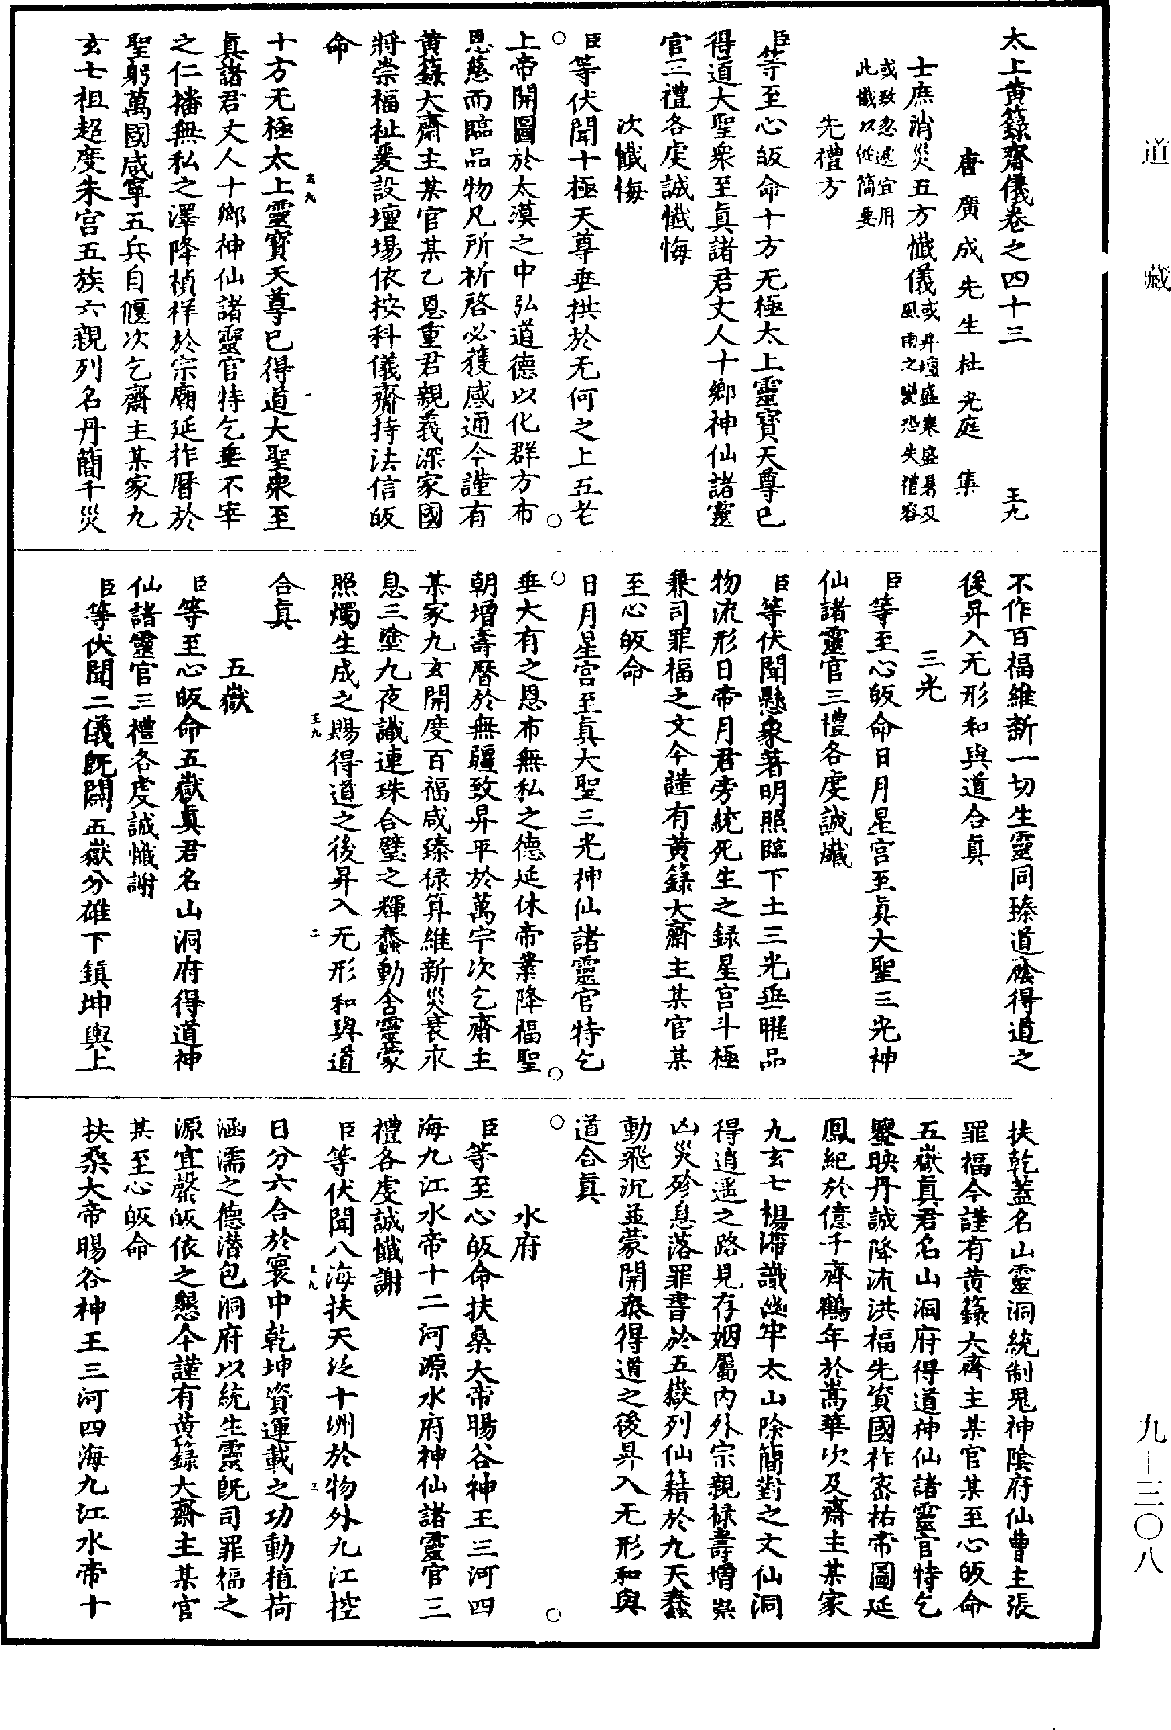 道藏
太上黃籙齋儀卷之四十三 王九
唐廣成先生杜光庭集
士庶消災五方懺儀 或升壇盛寒盛暑及風雨之變恐失禮容
或致怠遽宜用此懺以從簡要
先禮方
臣等至心皈命十方无極太上靈寶天尊已
得道大聖衆至眞諸君丈人十鄉神仙諸靈
官三禮各虔誠懺悔
次懺悔
臣等伏聞十極天尊垂拱於无何之上五老
上帝開圖於太漠之中弘道德以化群方布
恩慈而臨品物凡所祈啓必獲感通今謹有
黃籙大齋主某官某乙恩重君親義深家國
將崇福祉爰設壇場依按科儀齋持法信皈
命
十方无極太上靈寶天尊已得道大聖衆至
眞諸君丈人十鄉神仙諸靈官特乞垂不宰
之仁播無私之澤降禎祥於宗廟延祚曆於
聖躬萬國咸寧五兵自偃次乞齋主某家九
玄七祖超度朱宮五族六親列名丹簡千災
不作百福維新一切生靈同臻道蔭得道之
後昇入无形和與道合眞
三光
臣等至心皈命日月星宮至眞大聖三光神
仙諸靈官三禮各虔誠懺
臣等伏聞懸象著明照臨下土三光垂曜品
物流形日帝月君旁統死生之錄星宮斗極
兼司罪福之文今謹有黃籙大齋主某官某
至心皈命
日月星宮至眞大聖三光神仙諸靈官特乞
垂大有之恩布無私之德延休帝業降福聖
朝增壽曆於無疆致昇平於萬宇次乞齋主
某家九玄開度百福咸臻祿算維新災衰永
息三塗九夜讖連珠合璧之輝蠢動含靈蒙
照燭生成之賜得道之後昇入无形和與道
合眞
五嶽
臣等至心皈命五嶽眞君名山洞府得道神
仙諸靈官三禮各虔誠懺謝
臣等伏聞二儀旣闢五嶽分雄下鎮坤輿上
扶乾蓋名山靈洞統制鬼神陰府仙曹主張
罪福今謹有黃籙大齋主某官某至心皈命
五嶽眞君名山洞府得道神仙諸靈官特乞
鑒映丹誠降流洪福先資國祚密祐帝圖延
鳳紀於億千齊鶴年於嵩華次及齋主某家
九玄七楊滯識幽牢太山除簡對之文仙洞
得逍遥之路見存姻屬內外宗親祿壽增崇
凶災殄息落罪書於五嶽列仙籍於九天蠢
動飛沉並蒙開泰得道之後昇入无形和與
道合眞
水府
臣等至心皈命扶桑大帝暘谷神王三河四
海九江水帝十二河源水府神仙諸靈官三
禮各虔誠懺謝
臣等伏聞八海扶天泛十洲於物外九江控
日分六合於寰中乾坤資運載之功動植荷
涵濡之德潛包洞府以統生靈旣司罪福之
源宜罄皈依之懇今謹有黃籙大齋主某官
某至心皈命
扶桑大帝暘谷神王三河四海九江水帝十
九—三〇八